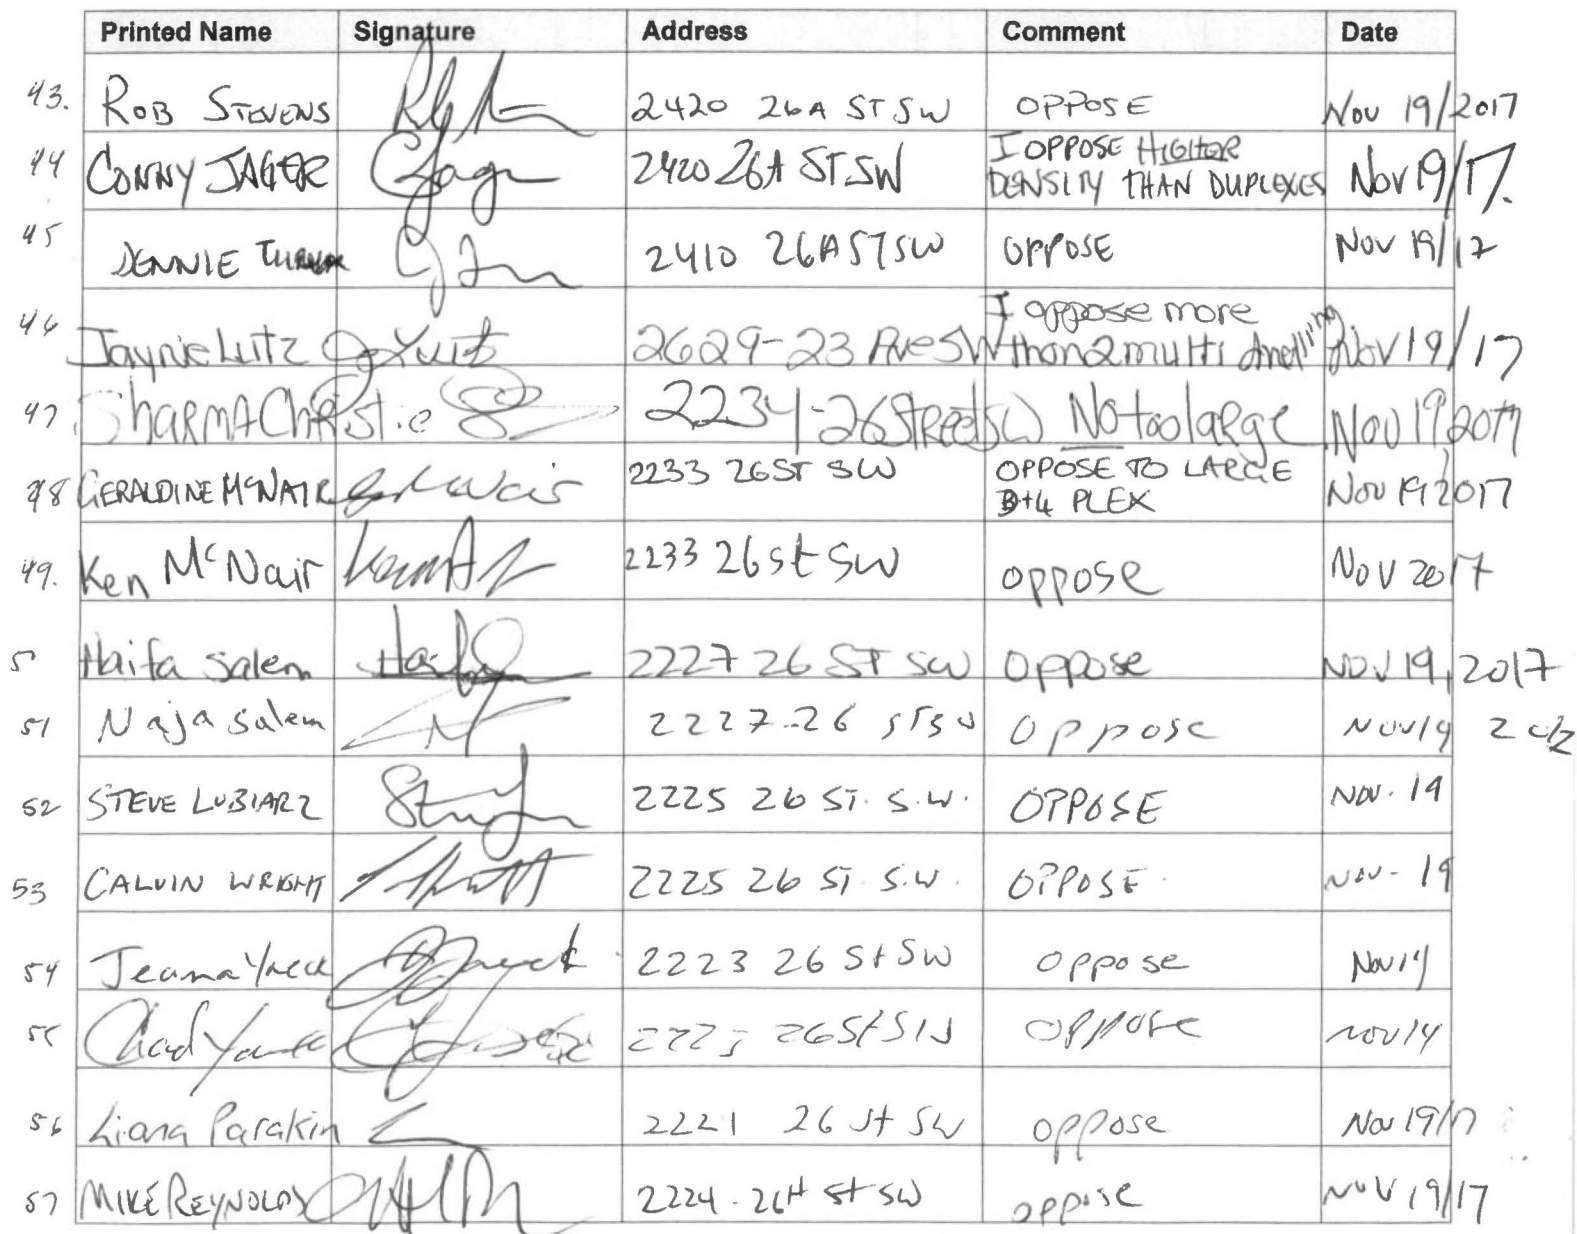 Printed Name Signature Address Comment Date
43. ROB STEVENS 2420 26A ST SW OPPOSE Nov 19/2017
44 CONNY JAGER 2420 26A ST SW I OPPOSE HIGHER
DENSITY THAN DUPLEXES Nov 19/17.
45 DENNIE 2410 26A ST SW OPPOSE Nov 19/17
46 Jaynie Lutz 2629-23 Ave SW I oppose more
than 2 multi dwelling Nov 19/17
47 SharmA ChRistie 2234-26 StReet SW No too laRge Nov 19 2017
48 GERALDINE McNAIR 2233 26 ST SW OPPOSE TO LARGE
3+4 PLEX Nov 19 2017
49. Ken McNair 2233 26 st SW oppose Nov 2017
5 Haifa Salem 2227 26 ST SW oppose NOV 19, 2017
51 Naja Salem 2227-26 ST SW oppose Nov 19
52 STEVE LUBIARZ 2225 26 ST. S.W. OPPOSE NOV. 19
53 CALVIN WRIGHT 2225 26 ST. S.W. OPPOSE NOV. 19
54 Jeanna 2223 26 St SW oppose Nov 19
55 Chad 26 St SW oppose nov 19
56 Liana Parakin 2221 26 St SW oppose Nov 19/17
57 MIKE REYNOLDS 2224 - 26 St SW oppose NOV 19/17